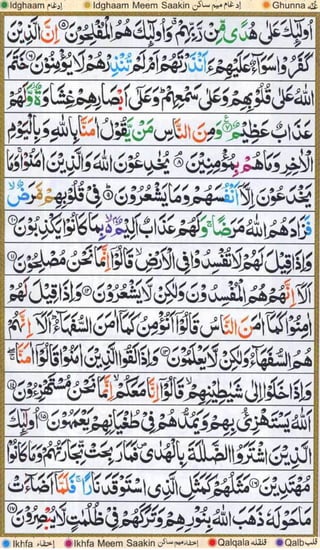 Idghaam ادغام Idghaam Meem Saakin ادغام میم ساکن Ghunna غنّہ
اُولٰٓئِكَ عَلٰى هُدًى مِّنْ رَّبِّهِمْ وَاُولٰٓئِكَ هُمُ الْمُفْلِحُوْنَ ۵ اِنَّ الَّذِيْنَ
كَفَرُوْا سَوَآءٌ عَلَيْهِمْ ءَاَنْذَرْتَهُمْ اَمْ لَمْ تُنْذِرْهُمْ لَا يُؤْمِنُوْنَ ۶ خَتَمَ
اللّٰهُ عَلٰى قُلُوْبِهِمْ وَعَلٰى سَمْعِهِمْ وَعَلٰٓى اَبْصَارِهِمْ غِشَاوَةٌ وَّلَهُمْ
عَذَابٌ عَظِيْمٌ ۷ وَمِنَ النَّاسِ مَنْ يَّقُوْلُ اٰمَنَّا بِاللّٰهِ وَبِالْيَوْمِ
الْاٰخِرِ وَمَا هُمْ بِمُؤْمِنِيْنَ ۸ يُخٰدِعُوْنَ اللّٰهَ وَالَّذِيْنَ اٰمَنُوْا وَمَا
يَخْدَعُوْنَ اِلَّآ اَنْفُسَهُمْ وَمَا يَشْعُرُوْنَ ۹ فِيْ قُلُوْبِهِمْ مَّرَضٌ
فَزَادَهُمُ اللّٰهُ مَرَضًا وَلَهُمْ عَذَابٌ اَلِيْمٌ بِمَا كَانُوْا يَكْذِبُوْنَ ۱۰
وَاِذَا قِيْلَ لَهُمْ لَا تُفْسِدُوْا فِى الْاَرْضِ قَالُوْٓا اِنَّمَا نَحْنُ مُصْلِحُوْنَ ۱۱
اَلَآ اِنَّهُمْ هُمُ الْمُفْسِدُوْنَ وَلٰكِنْ لَّا يَشْعُرُوْنَ ۱۲ وَاِذَا قِيْلَ لَهُمْ
اٰمِنُوْا كَمَآ اٰمَنَ النَّاسُ قَالُوْٓا اَنُؤْمِنُ كَمَآ اٰمَنَ السُّفَهَآءُ اَلَآ اِنَّهُمْ
هُمُ السُّفَهَآءُ وَلٰكِنْ لَّا يَعْلَمُوْنَ ۱۳ وَاِذَا لَقُوا الَّذِيْنَ اٰمَنُوْا قَالُوْٓا اٰمَنَّا
وَاِذَا خَلَوْا اِلٰى شَيٰطِيْنِهِمْ قَالُوْٓا اِنَّا مَعَكُمْ اِنَّمَا نَحْنُ مُسْتَهْزِءُوْنَ ۱۴
اَللّٰهُ يَسْتَهْزِئُ بِهِمْ وَيَمُدُّهُمْ فِيْ طُغْيَانِهِمْ يَعْمَهُوْنَ ۱۵ اُولٰٓئِكَ
الَّذِيْنَ اشْتَرَوُا الضَّلٰلَةَ بِالْهُدٰى فَمَا رَبِحَتْ تِّجَارَتُهُمْ وَمَا كَانُوْا
مُهْتَدِيْنَ ۱۶ مَثَلُهُمْ كَمَثَلِ الَّذِى اسْتَوْقَدَ نَارًا فَلَمَّآ اَضَآءَتْ
مَا حَوْلَهٗ ذَهَبَ اللّٰهُ بِنُوْرِهِمْ وَتَرَكَهُمْ فِيْ ظُلُمٰتٍ لَّا يُبْصِرُوْنَ ۱۷
Ikhfa إخفاء Ikhfa Meem Saakin إخفاء میم ساکن Qalqala قلقله Qalb قلب